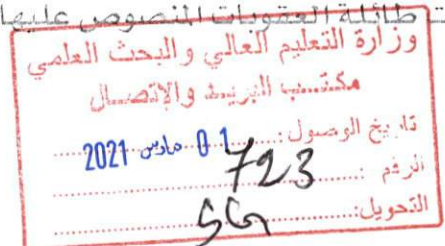 طائلة العقوبات المنصوص عليها
وزارة التعليم العالي والبحث العلمي
مكتب البريد والإتصال
تاريخ الوصول: 01 مارس 2021
الرقم: 723
التحويل: SG